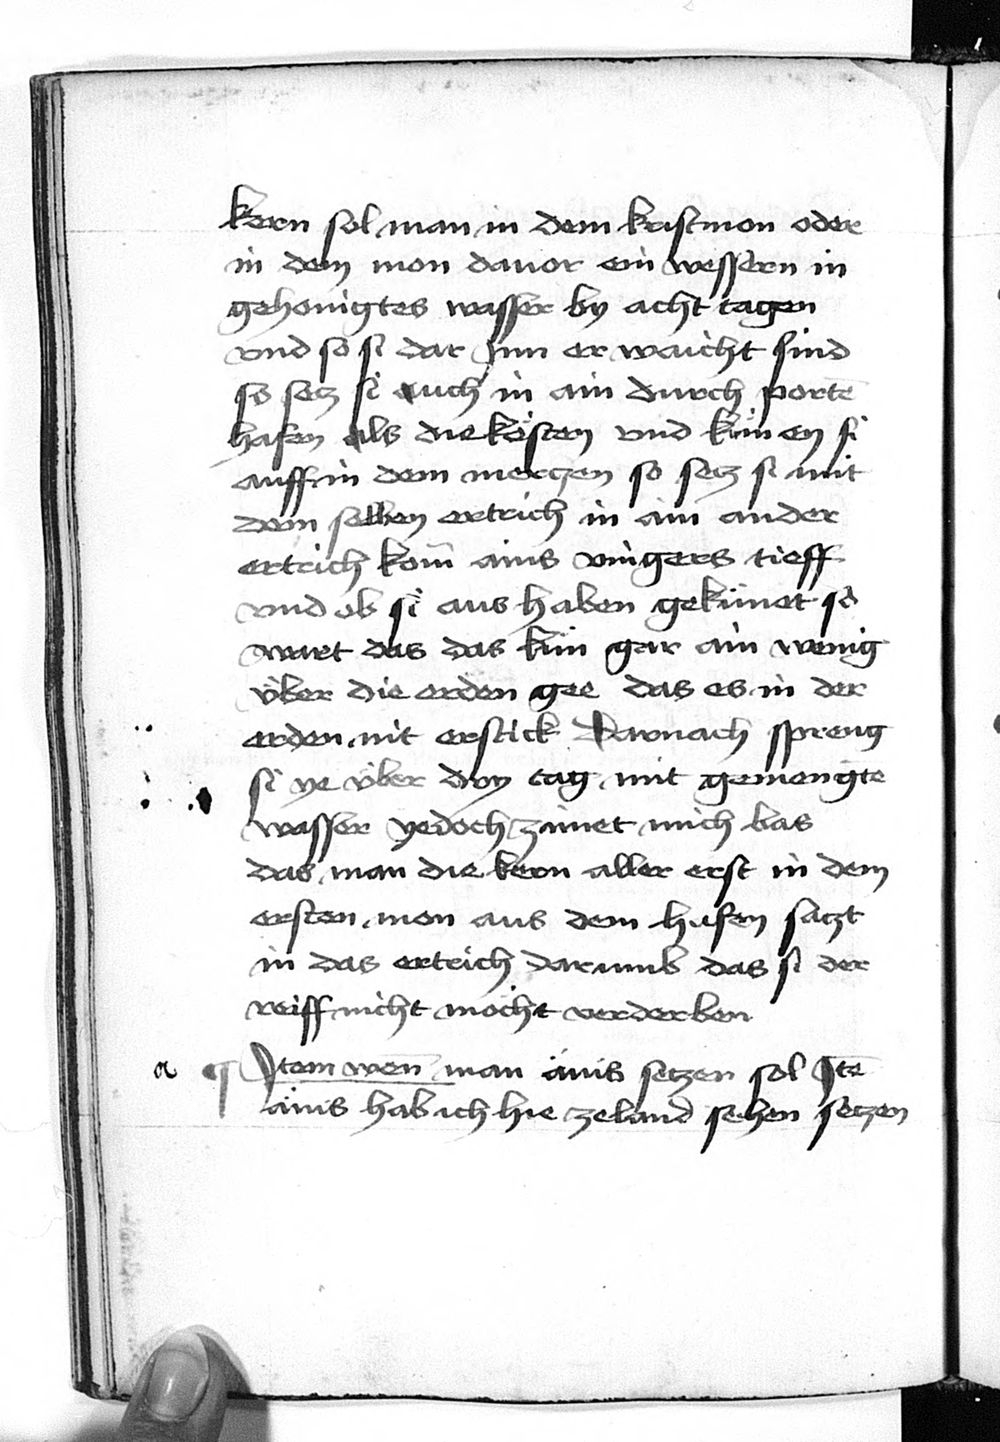 kern sol man in dem kristmon oder
in dem mon dauor ein wessern in
gehonigtes wasser by acht tagen
vnd so si dar Jnn er waicht sind
so secz si auch in ain durch portē
hafen als die kösten vnd kün en si
auff in dem merczen so secz si mit
dem selben ertrich in ain ander
ertrich kom̄ ains vingers tieff
vnd ob si aus haben gekünet so
wart das das kün gar ain wenig
v̈ber die erden gee das es in der
erden nit erstick Darnach spreng
si ye v̈ber dry tag mit gemengte
wasser yedoch zimet mich bas
das man die kern aller erst in dem
ersten mon aus dem hafen saczt
in das ertrich darumb das si der
reiff nicht möcht verderben
a ¶ Jtem wen̄ man änis seczen sol Jtē
änis hab ich hie ze land sehen seczen